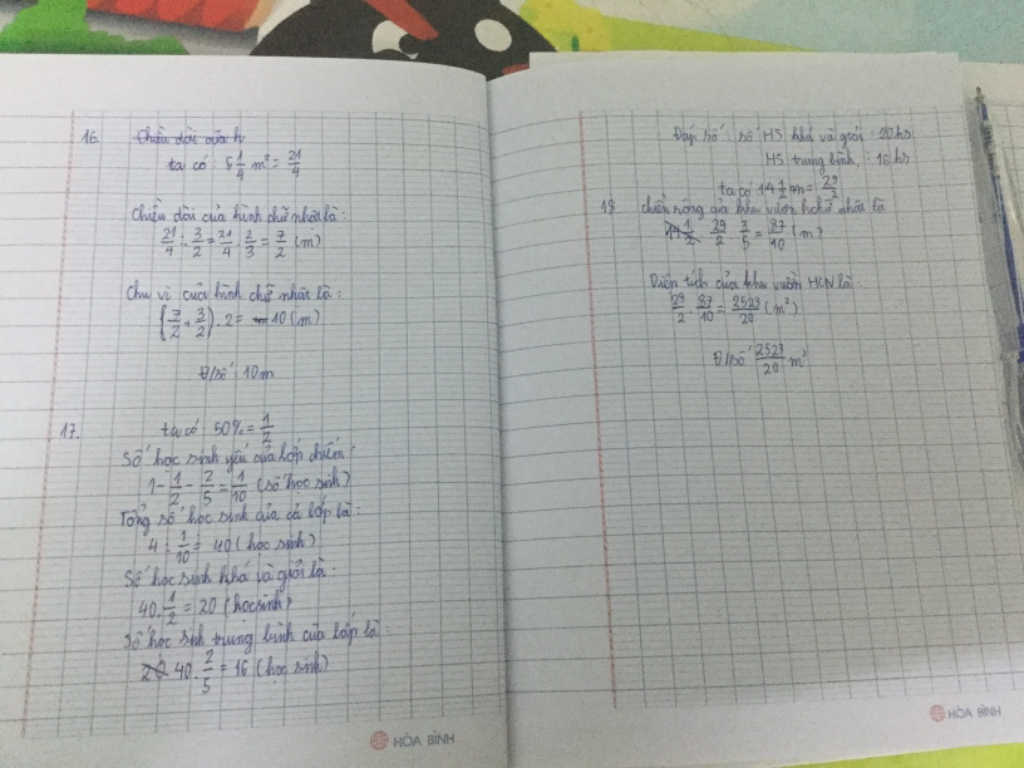 16. Chiều dài của h
ta có : 5 1/4 m² = 21/4
Chiều dài của hình chữ nhật là :
21/4 : 3/2 = 21/4 . 2/3 = 7/2 (m)
Chu vi của hình chữ nhật là :
(7/2 + 3/2) . 2 = 10 (m)
Đ/số : 10m
17. ta có 50% = 1/2
Số học sinh yếu của lớp chiếm :
1 - 1/2 - 2/5 = 1/10 (số học sinh)
Tổng số học sinh của cả lớp là :
4 : 1/10 = 40 (học sinh)
Số học sinh khá và giỏi là :
40 . 1/2 = 20 (học sinh)
Số học sinh trung bình của lớp là :
40 . 2/5 = 16 (học sinh)
HÒA BÌNH
Đáp số : số HS khá và giỏi : 20 hs
HS trung bình : 16 hs
ta có 14 1/2 m = 29/2
18. chiều rộng của khu vườn hchữ nhật là
29/2 . 3/5 = 87/10 (m)
Diện tích của khu vườn HCN là :
29/2 . 87/10 = 2523/20 (m²)
Đ/số : 2523/20 m²
HÒA BÌNH